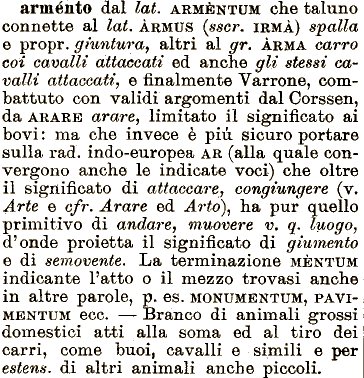 arménto dal lat. ARMÈNTUM che taluno
connette al lat. ÀRMUS (sscr. IRMÀ) spalla
e propr. giuntura, altri al gr. ÀRMA carro
coi cavalli attaccati ed anche gli stessi ca-
valli attaccati, e finalmente Varrone, com-
battuto con validi argomenti dal Corssen,
da ARARE arare, limitato il significato ai
bovi: ma che invece è più sicuro portare
sulla rad. indo-europea AR (alla quale con-
vergono anche le indicate voci) che oltre
il significato di attaccare, congiungere (v.
Arte e cfr. Arare ed Arto), ha pur quello
primitivo di andare, muovere v. q. luogo,
d'onde proietta il significato di giumento
e di semovente. La terminazione MÈNTUM
indicante l'atto o il mezzo trovasi anche
in altre parole, p. es. MONUMENTUM, PAVI-
MENTUM ecc. — Branco di animali grossi
domestici atti alla soma ed al tiro dei
carri, come buoi, cavalli e simili e per
estens. di altri animali anche piccoli.